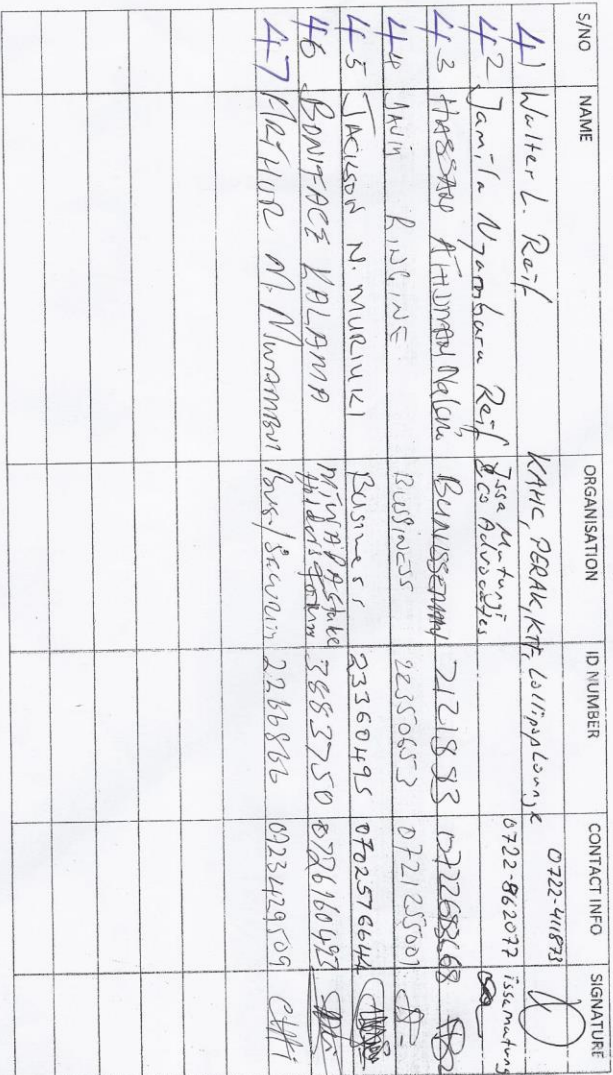 S/NO NAME ORGANISATION ID NUMBER CONTACT INFO SIGNATURE
41 Walter L. Reif KAHC, PERAK, KTF, Lollipop Lounge 0722-411873
42 Jamila Nyambura Reif Issa Mutungi & Co Advocates 0722-862077 issamutung
43 HASSAN ATHUMAN BUNISSEMAN 2121883 0722683668
44 RINGINE BUSSINESS 22350653 0721255001
45 JACKSON N. MURIUKI Business 23360495
46 BONIFACE KALAMA 3883750 0726160493
47 ARTHUR M. 22666866 0723429509